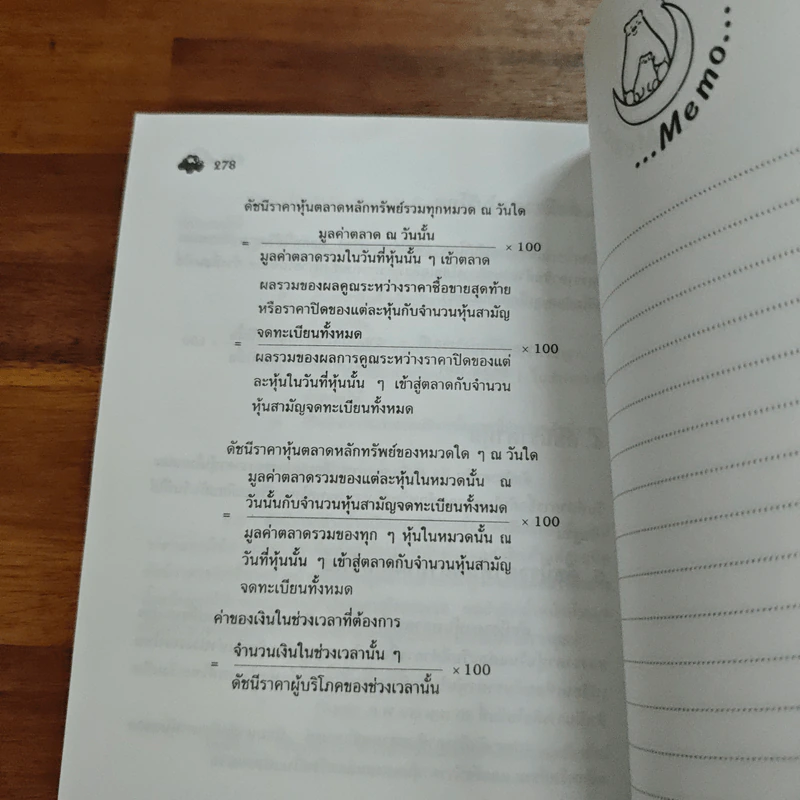 278
ดัชนีราคาหุ้นตลาดหลักทรัพย์รวมทุกหมวด ณ วันใด
= มูลค่าตลาด ณ วันนั้น × 100
มูลค่าตลาดรวมในวันที่หุ้นนั้น ๆ เข้าตลาด
ผลรวมของผลคูณระหว่างราคาซื้อขายสุดท้าย
หรือราคาปิดของแต่ละหุ้นกับจำนวนหุ้นสามัญ
= จดทะเบียนทั้งหมด × 100
ผลรวมของผลการคูณระหว่างราคาปิดของแต่
ละหุ้นในวันที่หุ้นนั้น ๆ เข้าสู่ตลาดกับจำนวน
หุ้นสามัญจดทะเบียนทั้งหมด
ดัชนีราคาหุ้นตลาดหลักทรัพย์ของหมวดใด ๆ ณ วันใด
มูลค่าตลาดรวมของแต่ละหุ้นในหมวดนั้น ณ
= วันนั้นกับจำนวนหุ้นสามัญจดทะเบียนทั้งหมด × 100
มูลค่าตลาดรวมของทุก ๆ หุ้นในหมวดนั้น ณ
วันที่หุ้นนั้น ๆ เข้าสู่ตลาดกับจำนวนหุ้นสามัญ
จดทะเบียนทั้งหมด
ค่าของเงินในช่วงเวลาที่ต้องการ
= จำนวนเงินในช่วงเวลานั้น ๆ × 100
ดัชนีราคาผู้บริโภคของช่วงเวลานั้น
...Memo...